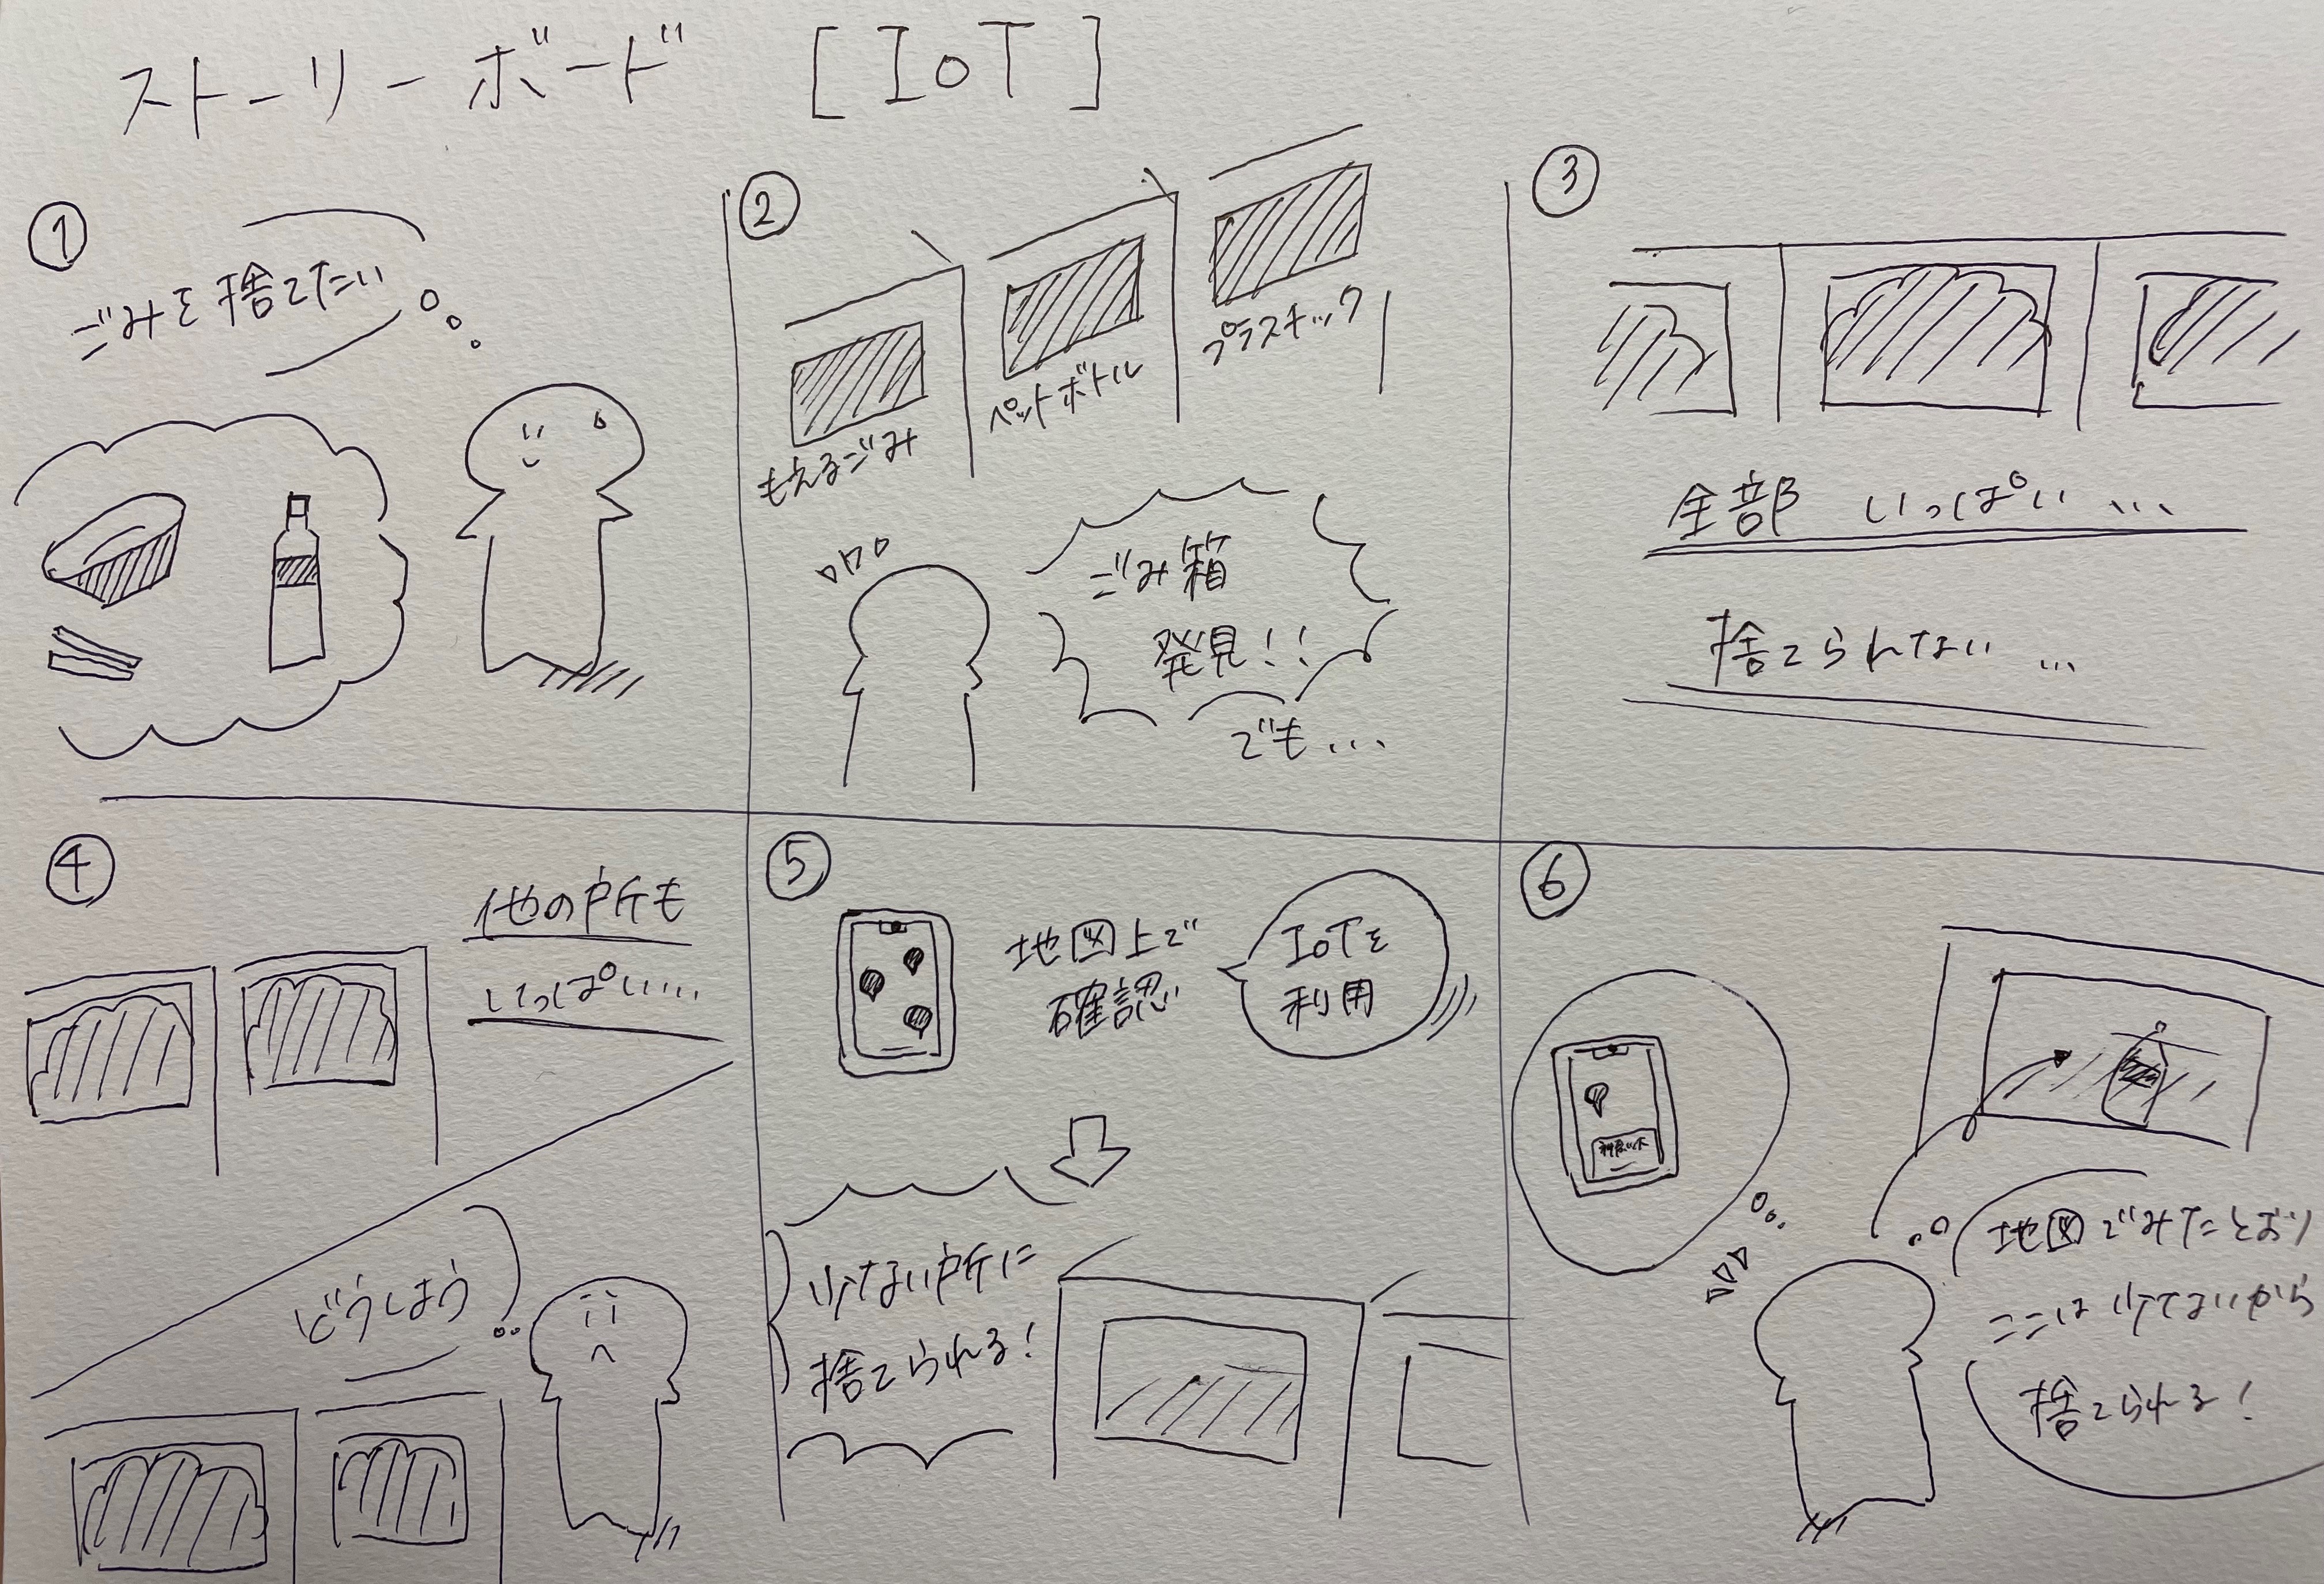 ストーリーボード [IoT]
①
ごみを捨てたい
②
もえるごみ
ペットボトル
プラスチック
ごみ箱
発見!!
でも...
③
全部 いっぱい...
捨てられない...
④
他の所も
いっぱい...
どうしよう
⑤
地図上で
確認
IoTを
利用
少ない所に
捨てられる!
⑥
地図でみたとおり
ここは少てないから
捨てられる!